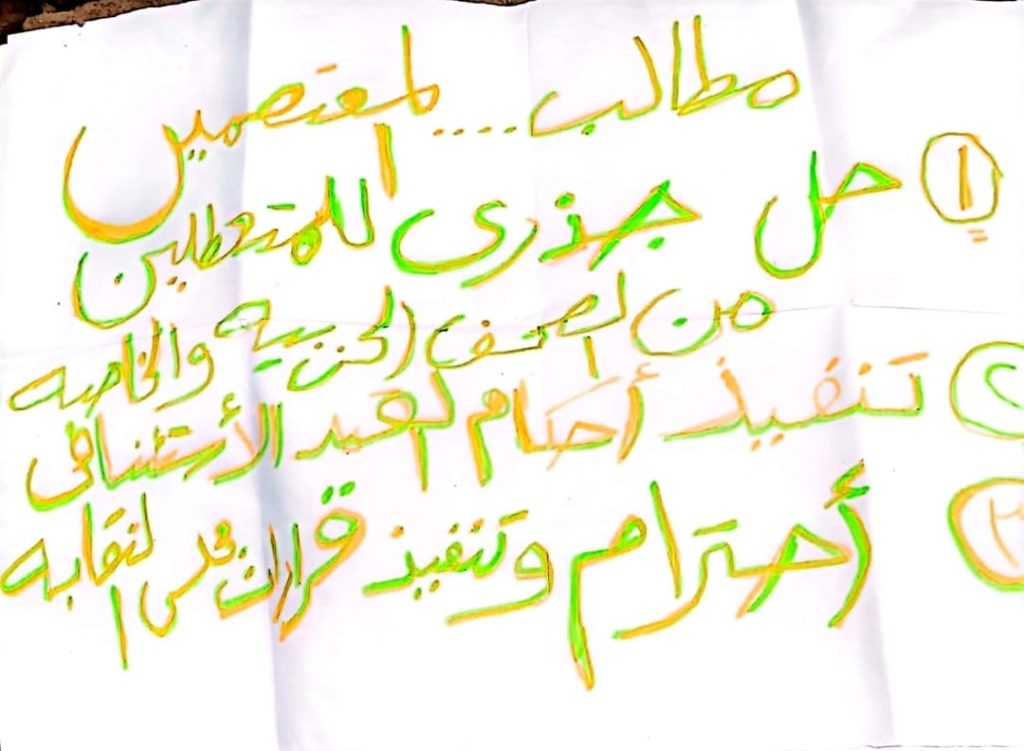 مطالب .... المعتصمين
١ حل جذرى للمتعطلين
من الصحف الحزبيه والخاصه
٢ تنفيذ أحكام القيد الأستئنافى
٣ أحترام وتنفيذ قرارات مجلس النقابه